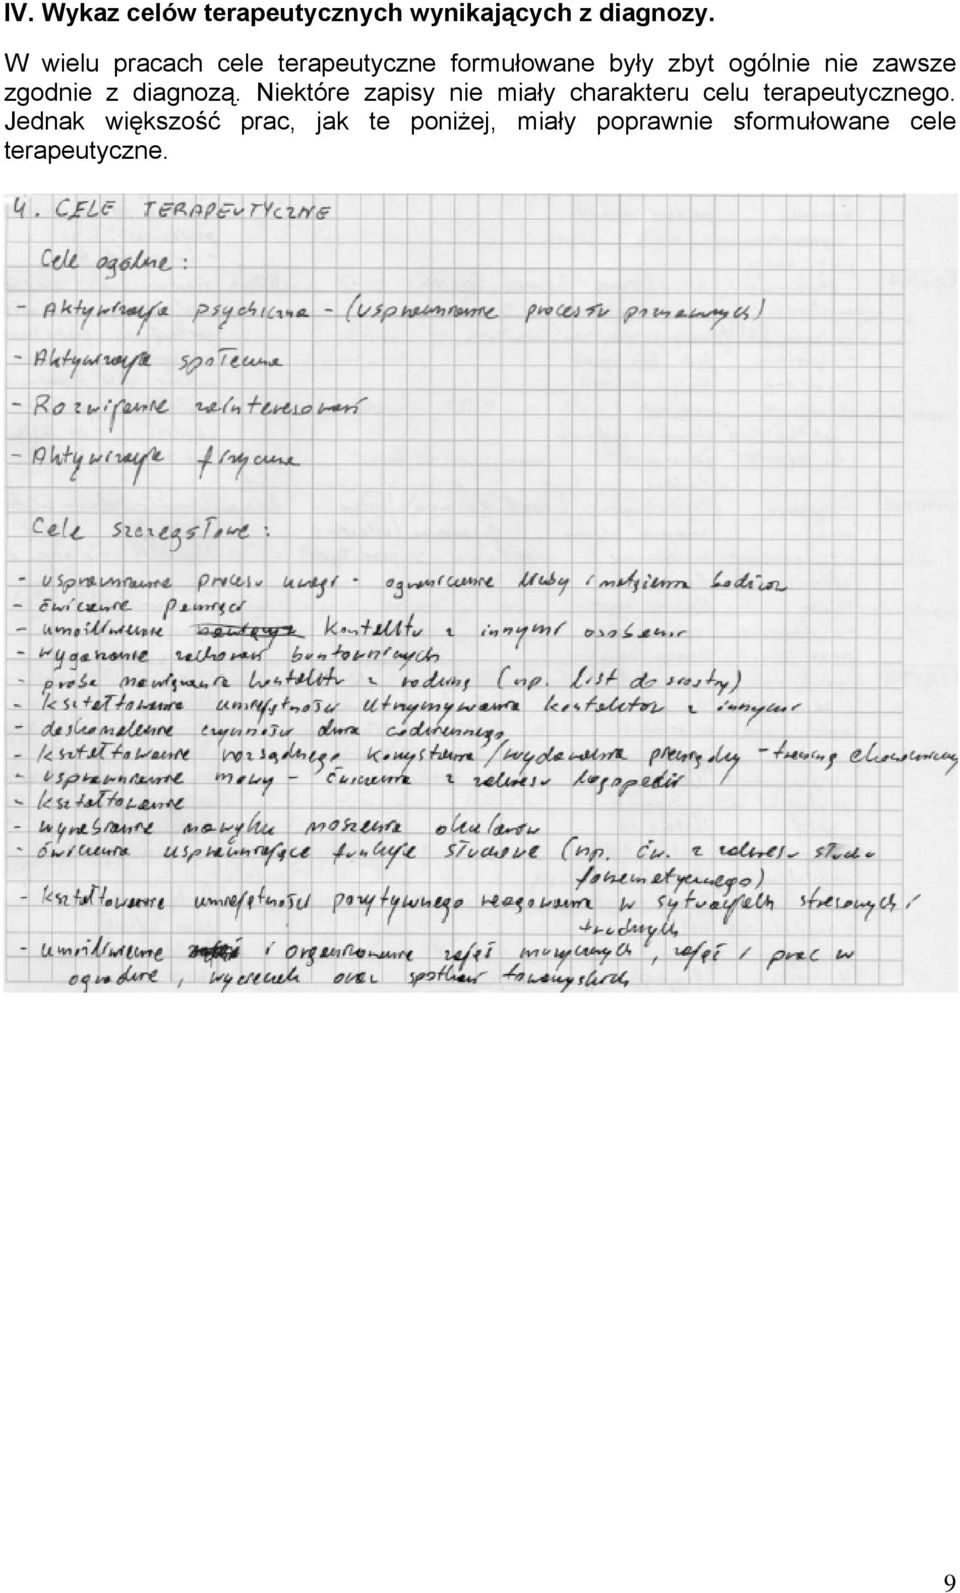 IV. Wykaz celów terapeutycznych wynikających z diagnozy.
W wielu pracach cele terapeutyczne formułowane były zbyt ogólnie nie zawsze
zgodnie z diagnozą. Niektóre zapisy nie miały charakteru celu terapeutycznego.
Jednak większość prac, jak te poniżej, miały poprawnie sformułowane cele
terapeutyczne.
4. CELE TERAPEUTYCZNE
Cele ogólne :
- Aktywizacja psychiczna - (usprawnianie procesów poznawczych)
- Aktywizacja społeczna
- Rozwijanie zainteresowań
- Aktywizacja fizyczna
Cele szczegółowe :
- usprawnianie procesu uwagi - ograniczenie liczby i natężenia bodźców
- ćwiczenie pamięci
- umożliwienie kontaktu z innymi osobami
- wygaszanie zachowań buntowniczych
- próba nawiązania kontaktu z rodziną (np. list do siostry)
- kształtowanie umiejętności utrzymywania kontaktów z innymi
- doskonalenie czynności dnia codziennego
- kształtowanie rozsądnego korzystania/wydawania pieniędzy - trening ekonomiczny
- usprawnianie mowy - ćwiczenia z zakresu logopedii
- kształtowanie
- wyrabianie nawyku noszenia okularów
- ćwiczenia usprawniające funkcje słuchowe (np. ćw. z zakresu słuchu
fonematycznego)
- kształtowanie umiejętności pozytywnego reagowania w sytuacjach stresowych i
trudnych
- umożliwienie i organizowanie zajęć muzycznych, zajęć i prac w
ogrodzie, wycieczek oraz spotkań towarzyskich
9